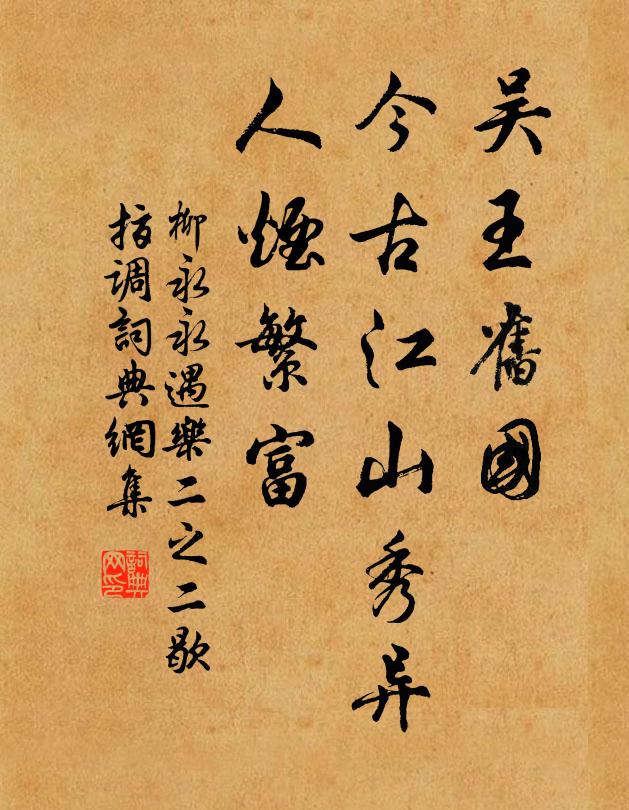 吴王舊國
今古江山秀异
人煙繁富
柳永永遇樂二之二歇
指调詞典網集
詞典
网印